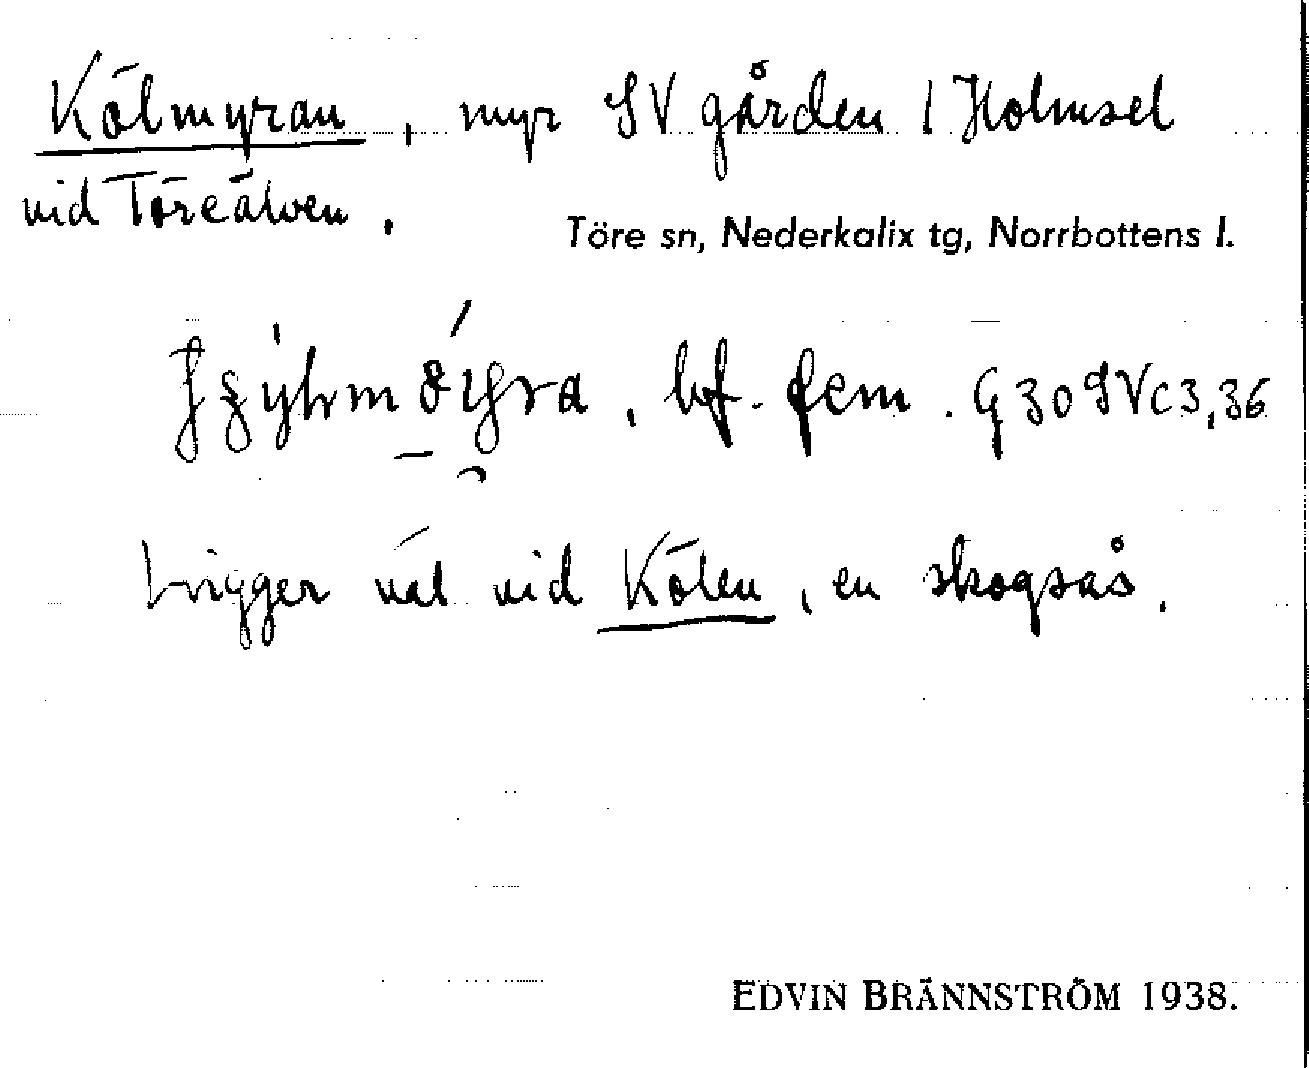 Kölmyran, myr SV gården 1 Holmsel
vid Töreälven.
Töre sn, Nederkalix tg, Norrbottens l.
bf. fem. G30SVc3,36
Ligger väl vid Kölen, en skogsås.
EDVIN BRÄNNSTRÖM 1938.